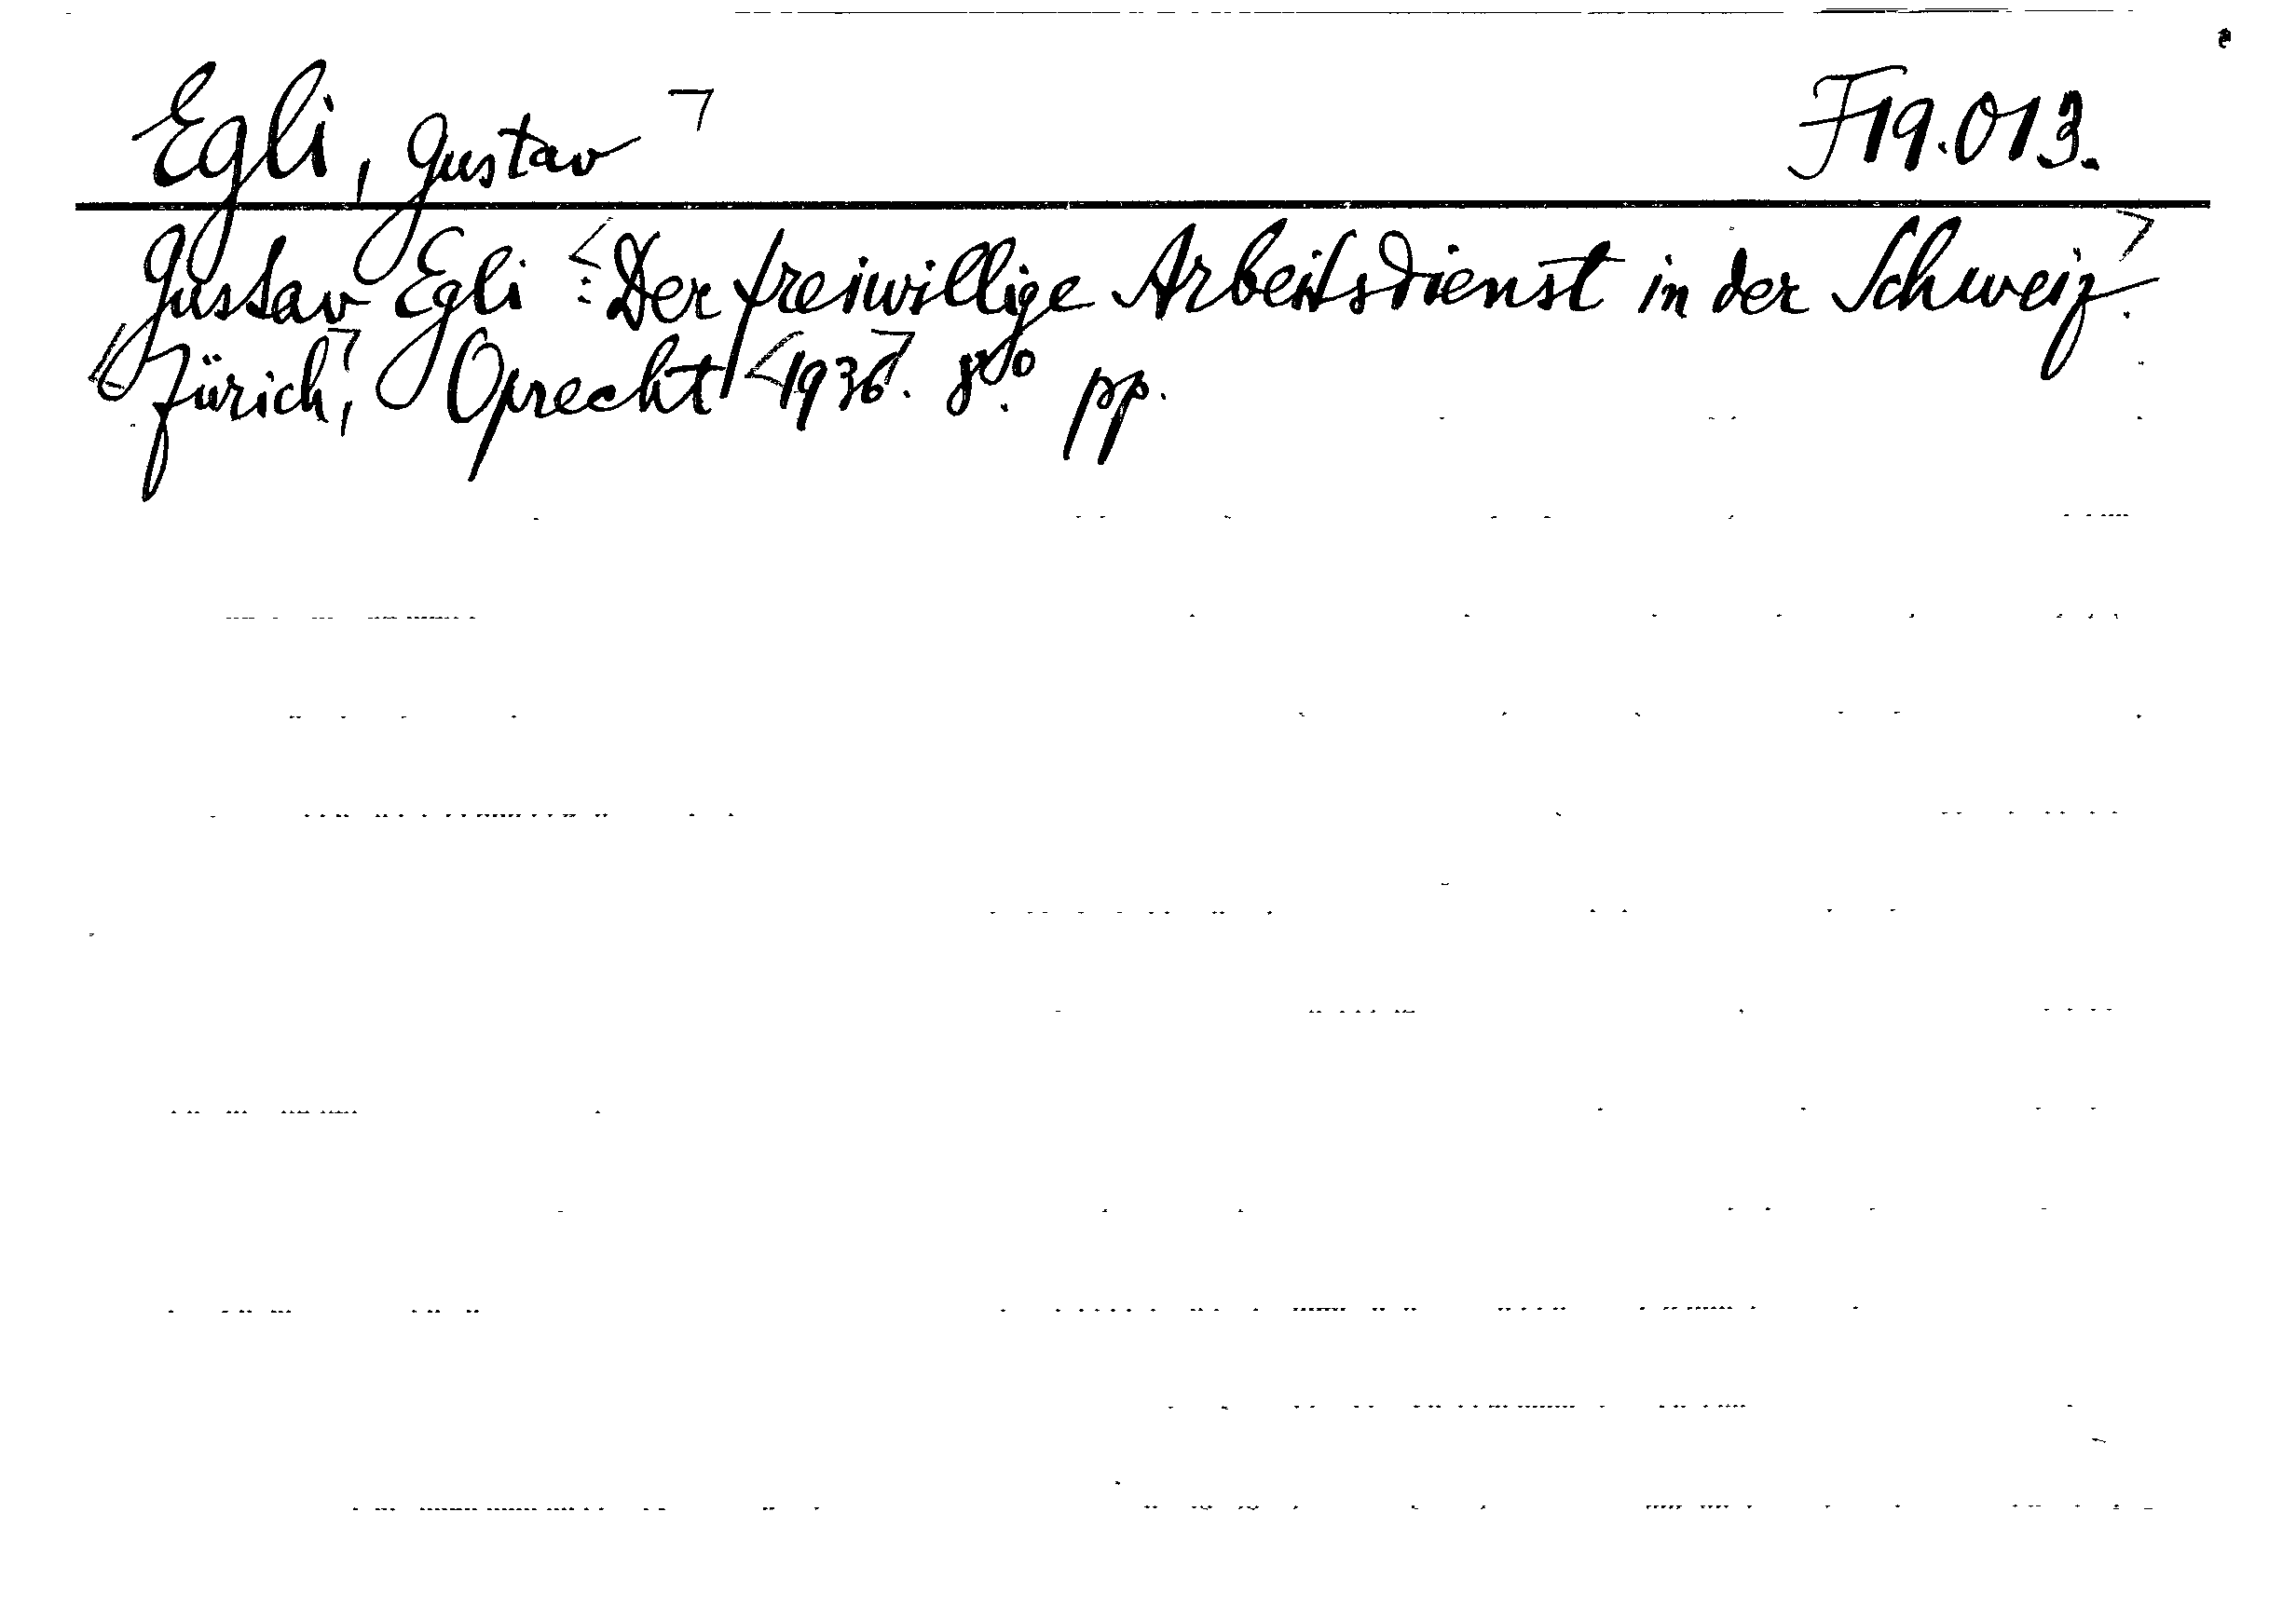 Egli, Gustav ㄱ F19.013.
Gustav Egli <: Der freiwillige Arbeitsdienst in der Schweizㄱ.
<Zürich,ㄱ Oprecht <1936ㄱ. 8vo. pp.